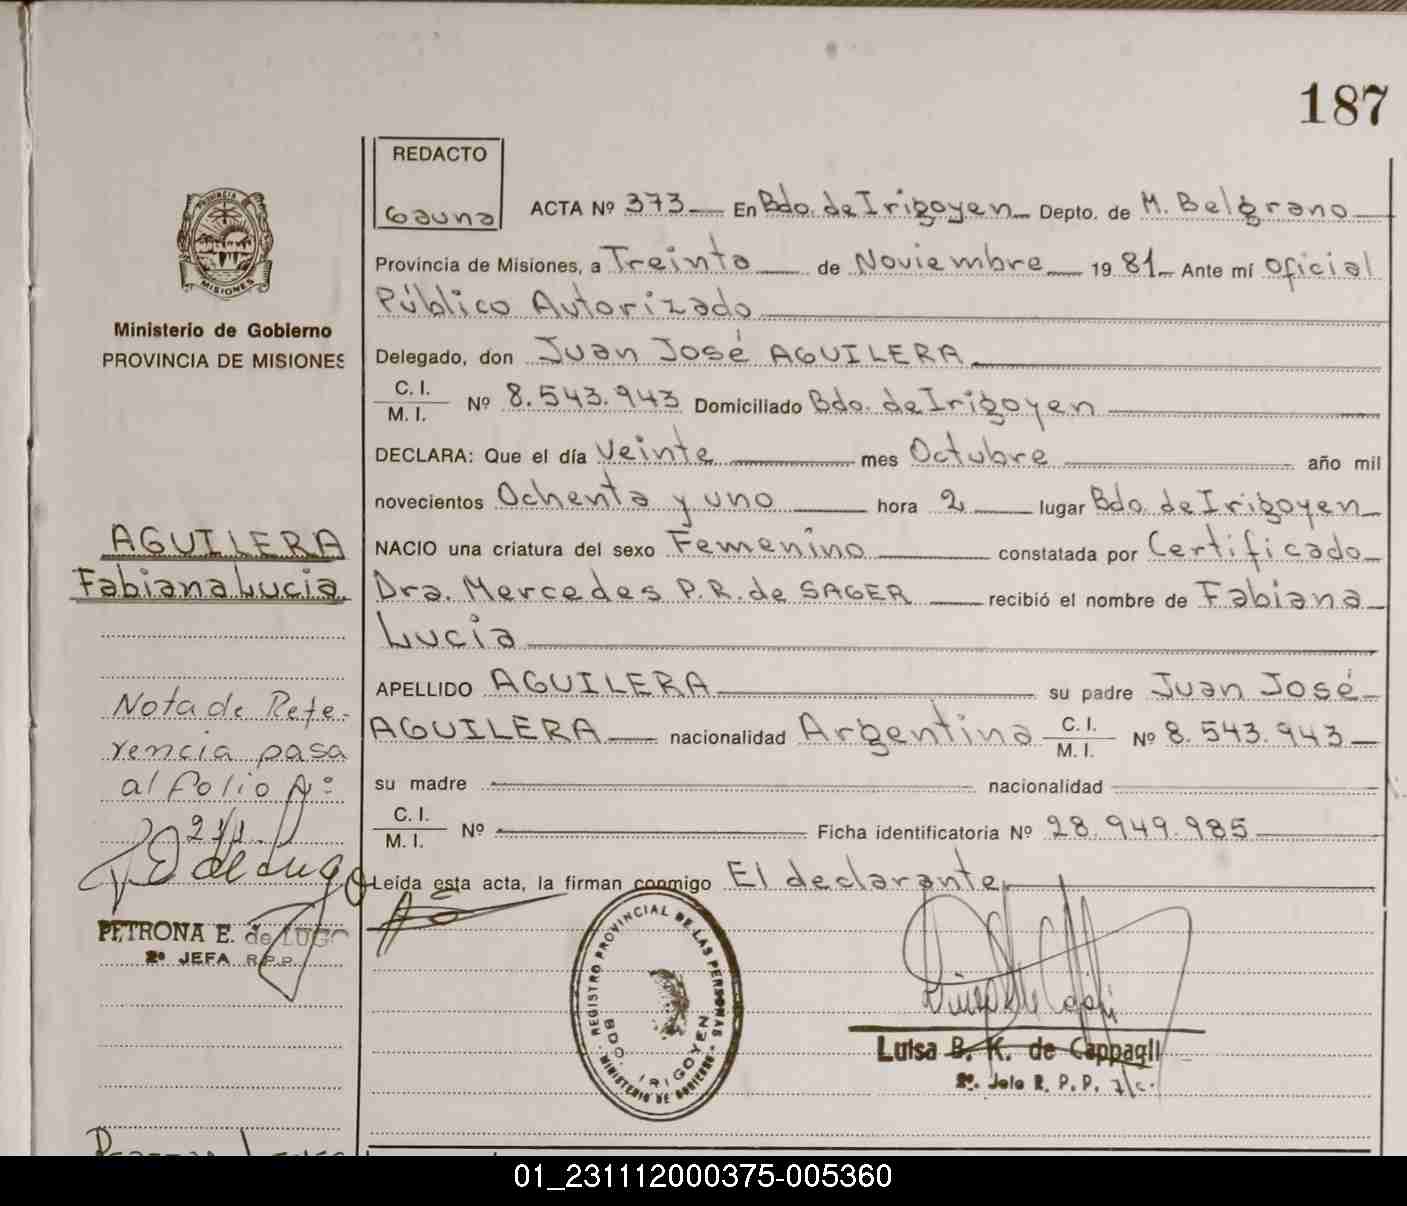 187
REDACTO
Gauna
ACTA Nº 373 En Bdo. de Irigoyen Depto. de M. Belgrano
Provincia de Misiones, a Treinta de Noviembre 19 81 Ante mí Oficial
Público Autorizado
Delegado, don Juan José AGUILERA
C. I.
M. I. Nº 8.543.943 Domiciliado Bdo. de Irigoyen
DECLARA: Que el día Veinte mes Octubre año mil
novecientos Ochenta y uno hora 2 lugar Bdo. de Irigoyen
NACIO una criatura del sexo Femenino constatada por Certificado
Dra. Mercedes P.R. de SAGER recibió el nombre de Fabiana
Lucia
APELLIDO AGUILERA su padre Juan José
AGUILERA nacionalidad Argentina C. I. M. I. Nº 8.543.943
su madre nacionalidad
C. I.
M. I. Nº Ficha identificatoria Nº 28.949.985
Leída esta acta, la firman conmigo El declarante
REGISTRO PROVINCIAL DE LAS PERSONAS
BDO. IRIGOYEN
MINISTERIO DE GOBIERNO
Luisa B. K. de Cappagli
2º. Jefe R. P. P. a/c.
PROVINCIA DE
MISIONES
Ministerio de Gobierno
PROVINCIA DE MISIONES
AGUILERA
Fabiana Lucia
Nota de Refe-
rencia pasa
al folio Nº
PETRONA E. de LUGO
2º JEFA R.P.P.
01_231112000375-005360